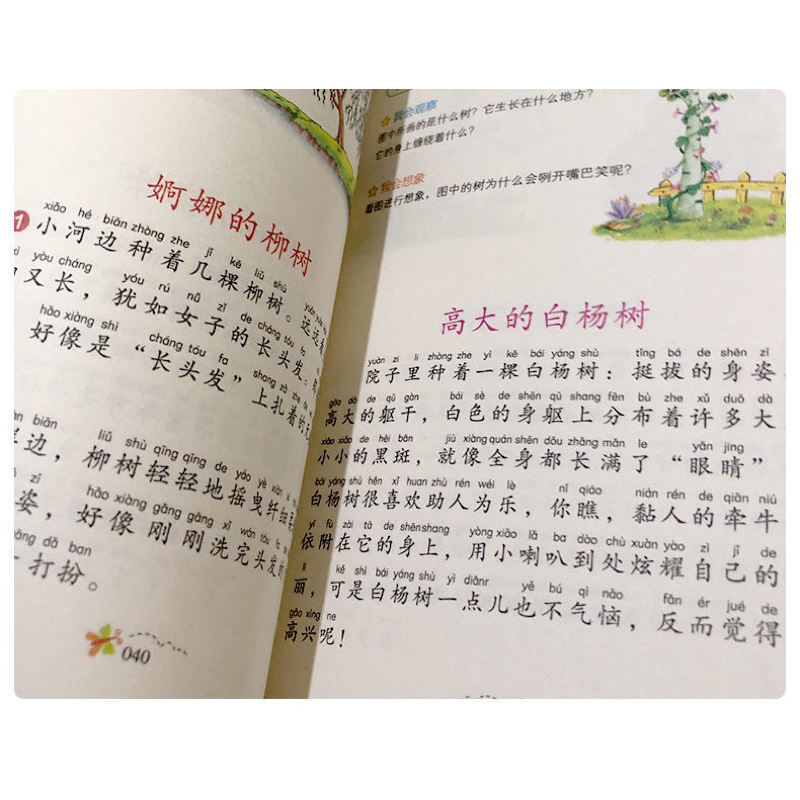 婀娜的柳树
1
xiǎo hé biān zhòng zhe jǐ kē liǔ shù
小河边种着几棵柳树。远远
yòu cháng yóu rú nǚ zǐ de cháng tóu fa
又长，犹如女子的长头发。
hǎo xiàng shì cháng tóu fa
好像是“长头发”上扎着的
àn biān liǔ shù qīng qīng de yáo yè xiān
岸边，柳树轻轻地摇曳纤细
zī hǎo xiàng gāng gāng xǐ wán tóu fa
姿，好像刚刚洗完头发
dǎ ban
打扮。
040
我会观察
图中所画的是什么树？它生长在什么地方？
它的身上缠绕着什么？
我会想象
看图进行想象，图中的树为什么会咧开嘴巴笑呢？
高大的白杨树
yuàn zi li zhòng zhe yì kē bái yáng shù tǐng bá de shēn zī
院子里种着一棵白杨树：挺拔的身姿
gāo dà de qū gàn bái sè de shēn qū shang fēn bù zhe xǔ duō dà
高大的躯干，白色的身躯上分布着许多大
xiǎo xiǎo de hēi bān jiù xiàng quán shēn dōu zhǎng mǎn le yǎn jing
小小的黑斑，就像全身都长满了“眼睛”
bái yáng shù hěn xǐ huan zhù rén wéi lè nǐ qiáo nián rén de qiān niú
白杨树很喜欢助人为乐，你瞧，黏人的牵牛
yī fù zài tā de shēn shang yòng xiǎo lǎ ba dào chù xuàn yào zì jǐ de
依附在它的身上，用小喇叭到处炫耀自己的
lì kě shì bái yáng shù yì diǎnr yě bú qì nǎo fǎn ér jué de
丽，可是白杨树一点儿也不气恼，反而觉得
gāo xìng ne
高兴呢！